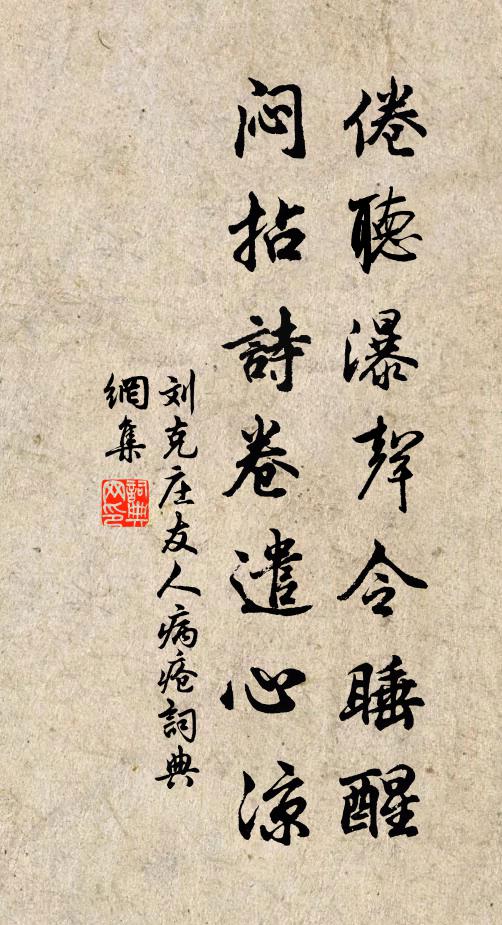 倦聽瀑聲令睡醒
悶拈詩卷遣心涼
刘克庄友人病疮詞典
網集
詞典
网印